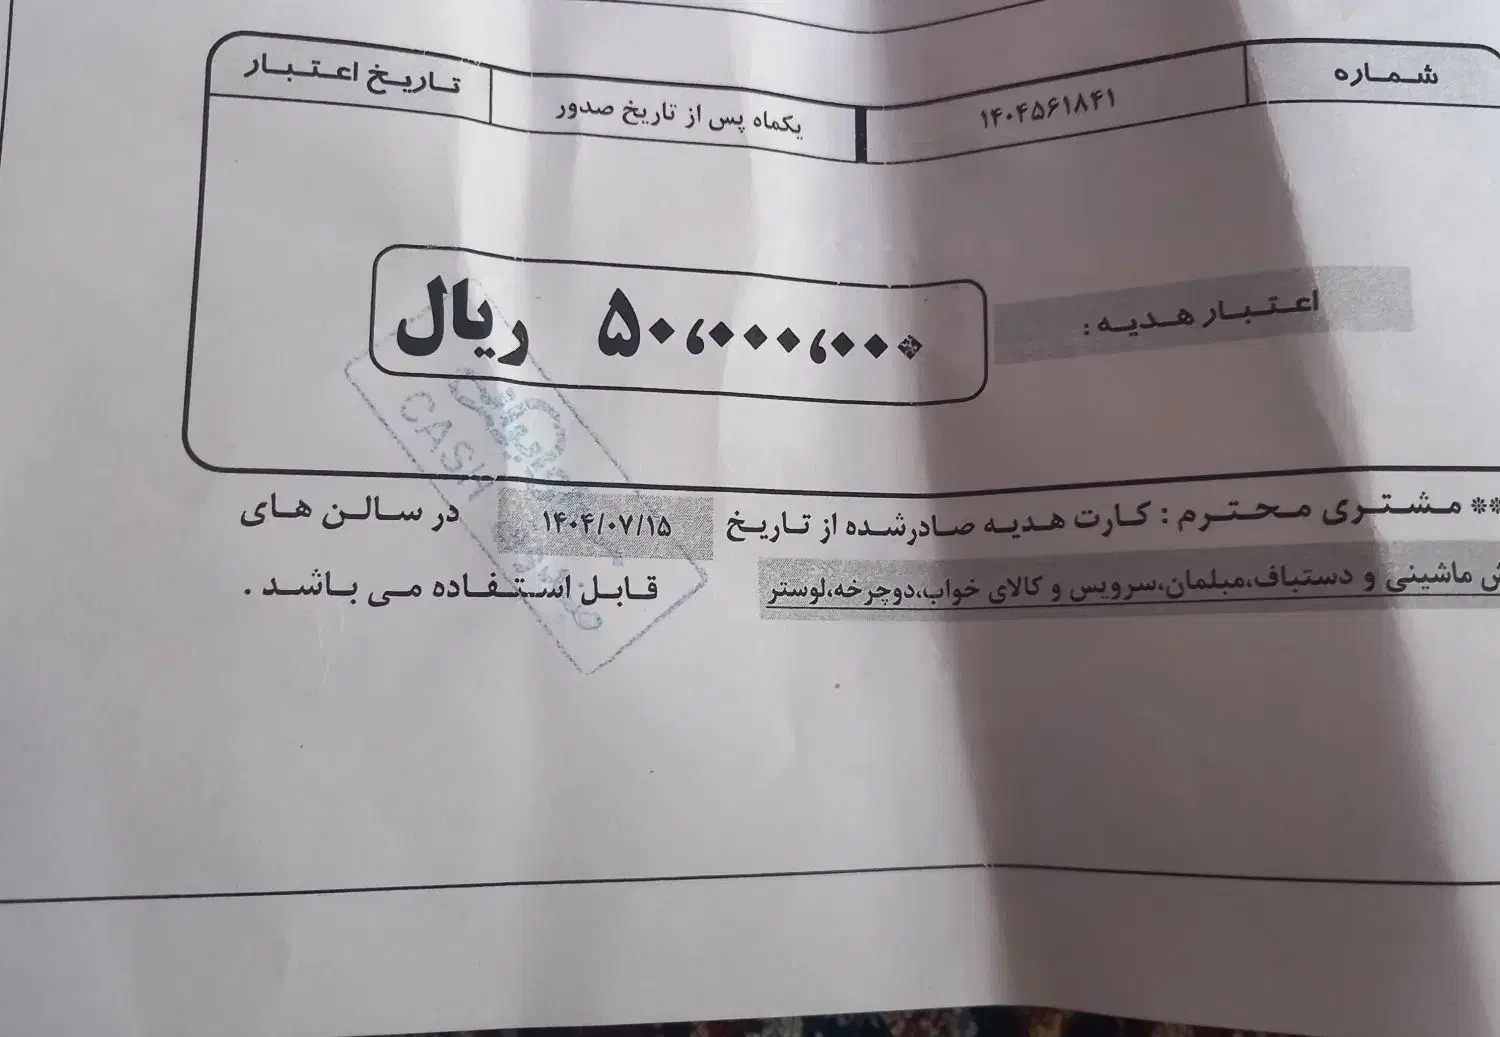 شماره
۱۴۰۴۵۶۱۸۴۱
یکماه پس از تاریخ صدور
تاریخ اعتبار
اعتبار هدیه :
۵۰،۰۰۰،۰۰۰ ریال
CASH
** مشتری محترم : کارت هدیه صادرشده از تاریخ ۱۴۰۴/۰۷/۱۵ در سالن های
ماشینی و دستباف،مبلمان،سرویس و کالای خواب،دوچرخه،لوستر قابل استفاده می باشد .